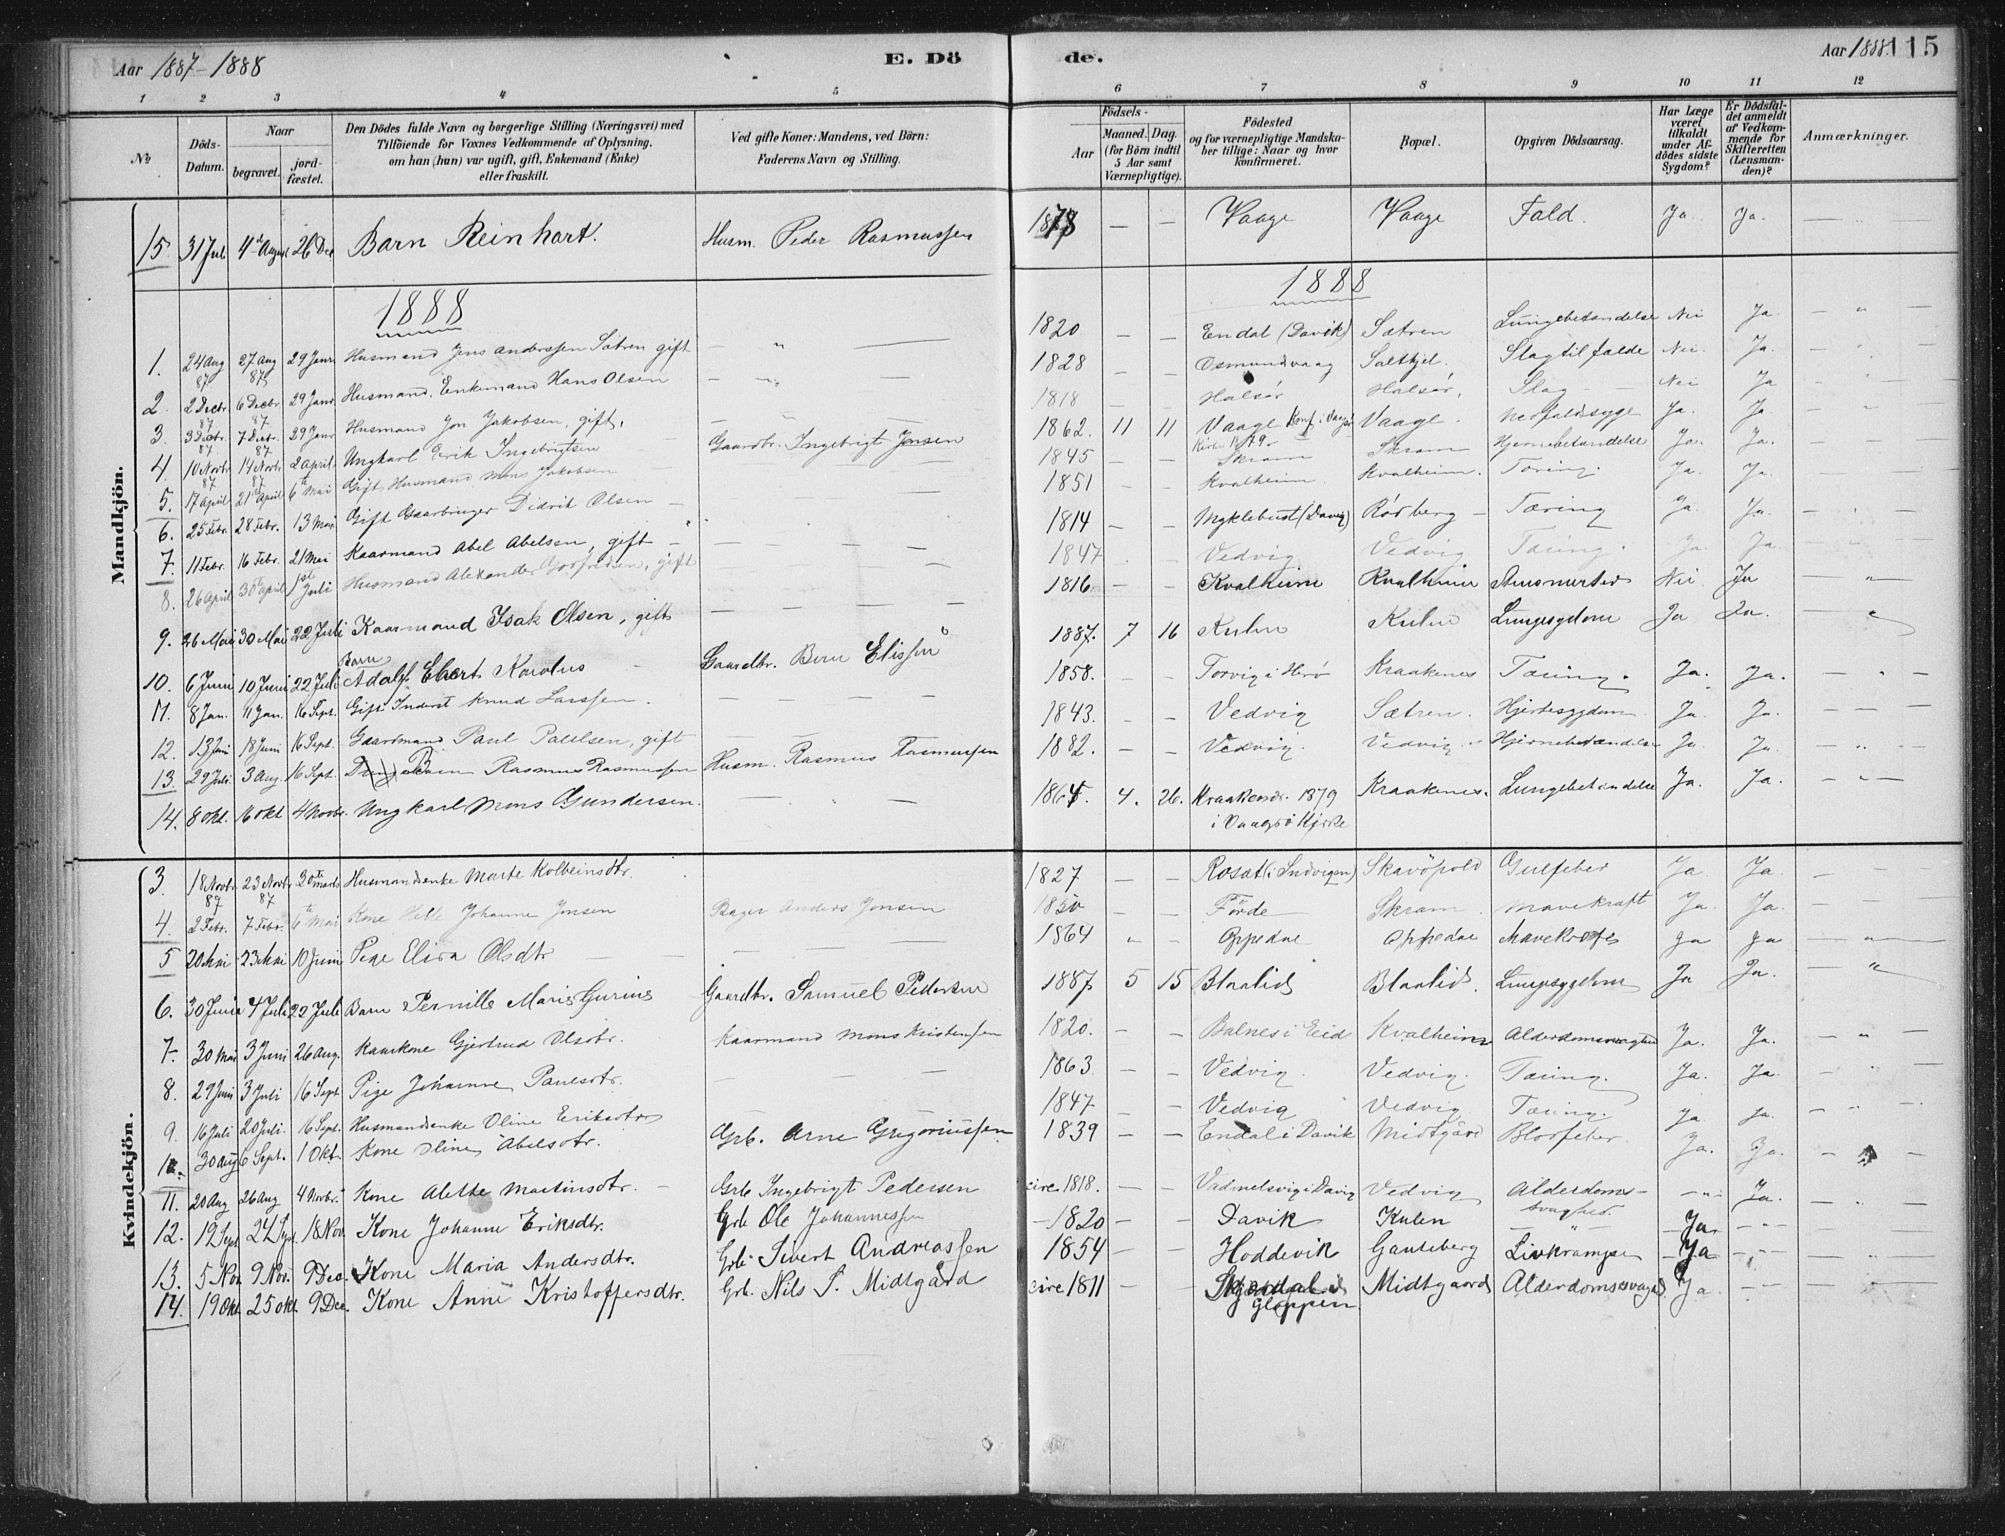 Aar 1887-1888
E. Dö
de.
Aar 1888 115
1 2 3 4 5 6 7 8 9 10 11 12
No
Döds-Datum.
Naar
begravet.
jord-fæstet.
Den Dödes fulde Navn og borgerlige Stilling (Næringsvei) med
Tilföiende for Voxnes Vedkommende af Oplysning,
om han (hun) var ugift, gift, Enkemand (Enke)
eller fraskilt.
Ved gifte Koner: Mandens, ved Börn:
Faderens Navn og Stilling.
Födsels-
Aar
Maaned. Dag.
(for Börn indtil
5 Aar samt
Værnepligtige).
Födested
og for værnepligtige Mandska-
ber tillige: Naar og hvor
konfirmeret.
Bopæl.
Opgiven Dödsaarsag.
Har Læge
været
tilkaldt
under Af-
dödes sidste
Sygdom?
Er Dödsfal-
det anmeldt
af Vedkom-
mende for
Skifteretten
(Lensman-
den)?
Anmærkninger.
Mandkjön.
15. 31 Juli 4de August 26 Dec Barn Reinhart. Husm. Peder Rasmussen 1878 — — Vaage Vaage Fald. Ja. Ja. —
1888
1888
1. 24 Aug 87 27 Aug 87 29 Janr Husmand Jens Anderssen Sætren gift — 1820 — — Endal (Davik) Sætren Lungebetændelse Nei Ja
2. 2 Decbr. 87 6 Decbr 87 29 Janr. Husmand. Enkemand Hans Olsen — 1828 — — Osmundvaag Saltkjel. Slagtilfælde Nei. Ja.
3. 3 Decbr. 87 7 Decbr. 87 29 Janr Husmand Jon Jakobsen, gift. — 1818 — — Halsør Halsør. Slag — Nei Ja
4. 10 Novbr 87 14 Novbr. 87 2 April. Ungkarl Erik Ingebrigtsen Gaardbr. Ingebrigt Jonsen 1862. 11 11 Vaage Konf. i Vaagsø Kirke 1879 Vaage. Nerfaldssyge Ja. Ja
5. 17 April 21 April 6te Mai Gift Husmand Mons Jakobsen — 1845 — — Skram Skram Hjernebetændelse Ja. Ja.
6. 25 Febr. 28 Febr. 13 Mai Gift Gaarbruger Didrik Olsen — 1851 — — Kvalheim. Kvalheim. Tæring. Ja. Ja.
7. 11 Febr. 16 Febr. 21 Mai Kaarmand Abel Abelsen, gift — 1814 — — Myklebust (Davig) Rødberg — Tæring Ja. Ja.
8. 26 April 30te April 1st Juli Husmand Alexander, gift — 1847 Vedvig Vedvig Tæring. Ja. Ja.
9. 26 Mai 30 Mai 22 Juli Kaarmand Isak Olsen, gift — 1816. — — Kvalheim Kvalheim Nei Ja —
10. 6 Juni 10 Juni 22 Juli Barn Adolf Ebert Karolus Gaardbr. Bern Elissen 1887. 7 16 Kulen Kulen Lungesygdom Ja Ja. —
11. 8 Jan. 11 Jan. 16 Sept. Gift Inderst Knud Larssen. — 1858. — — Torvig i Herø Kraakenes Tæring. Ja. Ja.
12. 13 Juni 18 Juni 16 Sept. Gaardmand Paul Paulsen, gift — 1843. — — Vedvig Sætren. Hjertesygdom Ja. Ja.
13. 29 Juli 3 Aug. 16 Sept. Barn Rasmus Rasmussen Husm. Rasmus Rasmussen 1882. — — Vedvig. Vedvig. Hjernebetændelse Ja. Ja.
14. 8 Okt. 16 Okt 4 Novbr. Ungkarl Mons Gundersen. — 1864. 4. 26. Kraakenes. 1879 i Vaagsø Kirke Kraakenes. Lungebetændelse Ja. Ja.
Kvindekjön.
3. 18 Novbr 87 23 Novbr 87 30te Marts Husmandsenke Marte Kolbeinsdtr. — 1827 — — Rosæt (i Indvigen) Skavöpold Gulfeber Ja Ja.
4. 2 Febr. 7 Febr. 6te Mai Kone Helle Johanne Jonsen Bager Anders Jonsen 1850 — — Förde Skram. Mavekræft Ja. Ja.
5 20 Mai 23 Mai 10 Juni Pige Elisa Olsdtr — 1864 — Oppedal Oppedal Mavekræft Ja Ja —
6. 30 Juni 4 Juli 22 Juli Barn Pernille Marie Gurine Gaardbr. Samuel Pedersen 1887 5 15 Blaalid Blaalid. Lungesygdom Ja Ja. —
7. 30 Mai 3 Juni 26 Aug. Kaarkone Gjertrud Olsdtr. Kaarmand Mons Kristensen 1820. — — Balnes i Eid Kvalheim Alderdomssvaghed Ja. Ja.
8. 29 Juni 3 Juli 16 Sept Pige Johanne Paulsdtr. — 1863. — — Vedvig. Vedvig. Tæring. Ja. Ja.
9. 16 Juli 20 Juli. 16 Sept. Husmandsenke Oline Eriksdtr — 1847 — — Vedvig Vedvig Tæring. Ja Ja.
10. 30 Aug 6 Sept. 1 Okt. Kone Oline Abelsdtr. Grb. Arne Gregoriussen 1839 — — Endal i Davik Midtgård Blodfeber. Ja. Ja.
11. 20 Aug 26 Aug 4 Novbr. Kone Alette Martinsdtr. — Grb Ingebrigt Pedersen circ 1818. — — Vedvig Alderdoms-svaghed. Ja.
12. 19 Sept 24 Sept 18 Nov. Kone Johanne Eriksdtr. Grb Ole Johannessen 1820 — — Davik Kulen — " — Ja — " —
13. 5 Nov. 9 Nov. 9 Dec. Kone Maria Andersdtr. Grb. Sivert Andreassen 1854 — — Hoddevik Ganteberg Livkrampe Ja
14. 19 Okt. 25 Okt. 9 Dec. Kone Anne Kristoffersdtr. Grb. Nils S. Midtgård circ 1811 — — Gloppen Midtgaard Alderdomssvaghed. Ja.